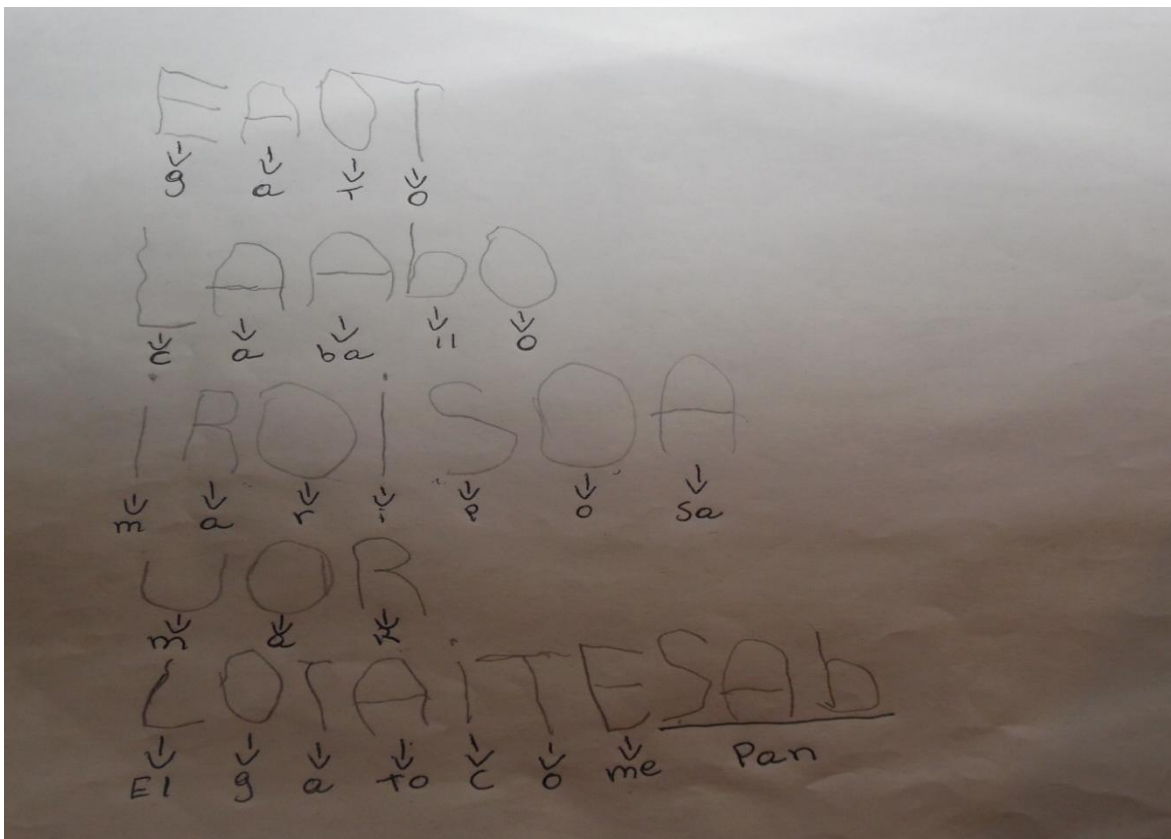 EAOT
g a T o
LAAbO
c a ba ll o
iROiSOA
m a r i p o sa
UOR
m a r
LOTAiTESAb
El g a to c o me Pan